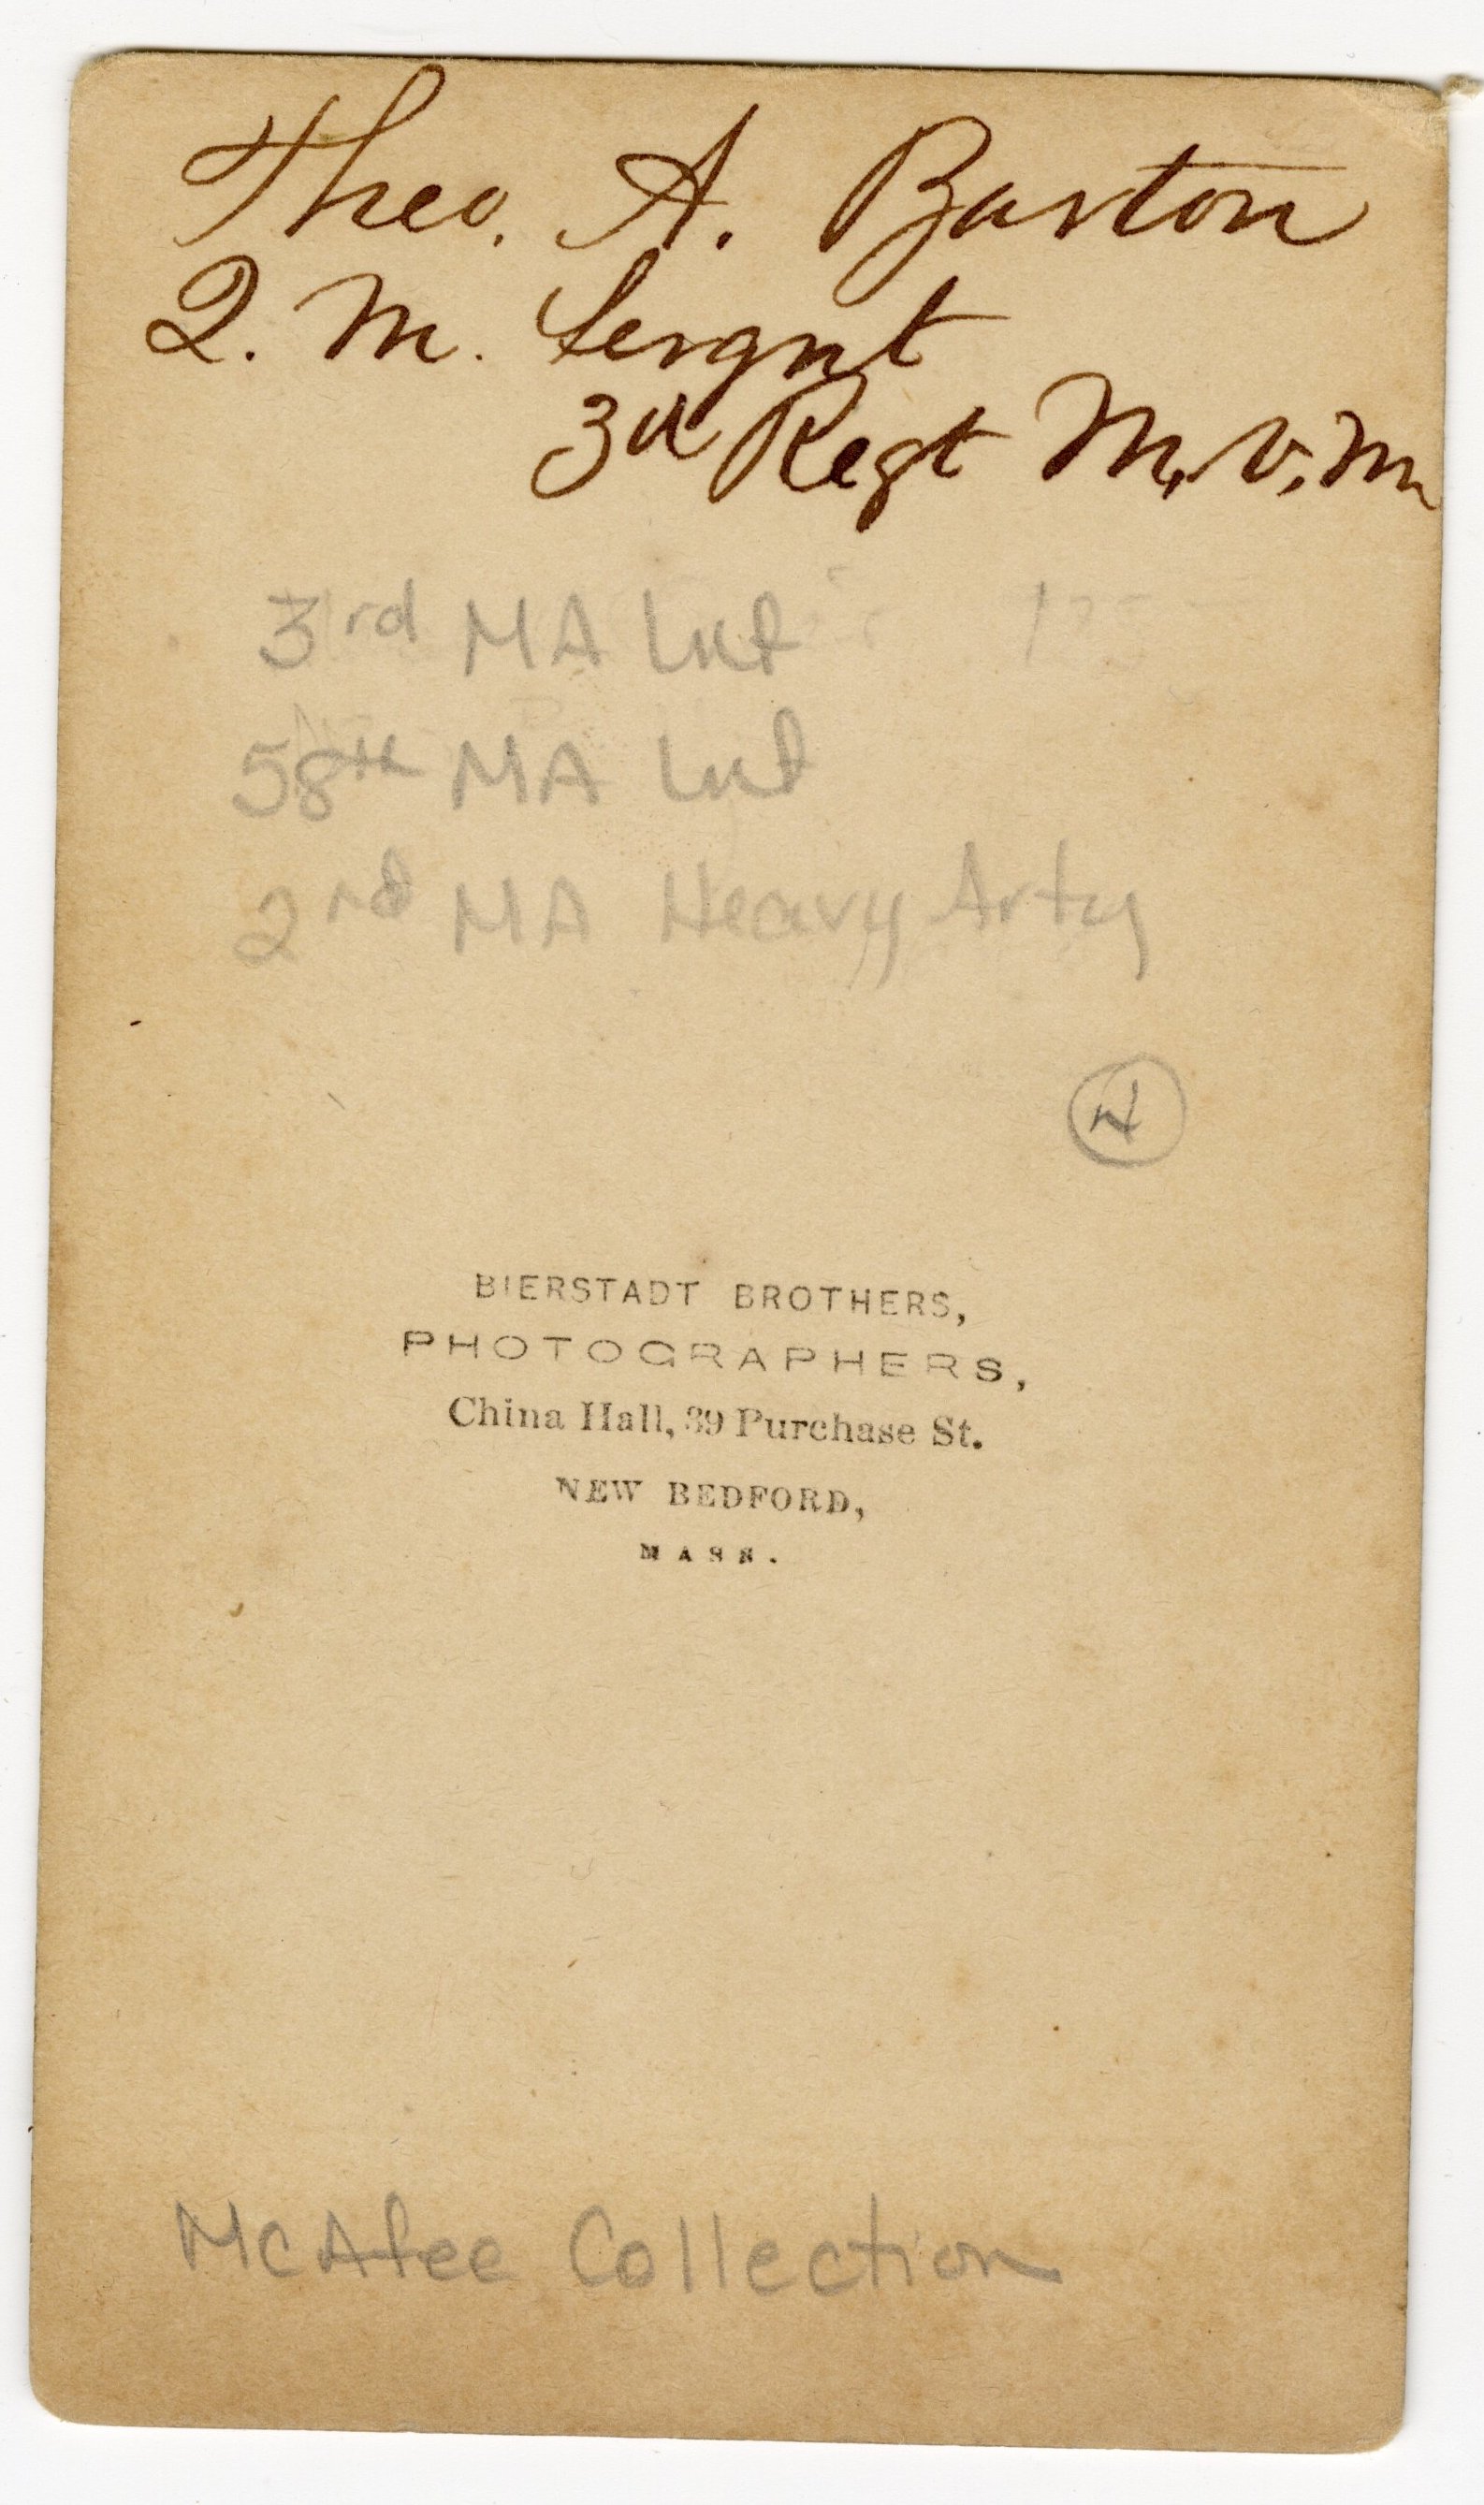 Theo. A. Barton
Q. M. Sergnt
3d Regt M. V. M
3rd MA Inf
58th MA Inf
2nd MA Heavy Arty
BIERSTADT BROTHERS,
PHOTOGRAPHERS,
China Hall, 39 Purchase St.
NEW BEDFORD,
MASS.
McAfee Collection